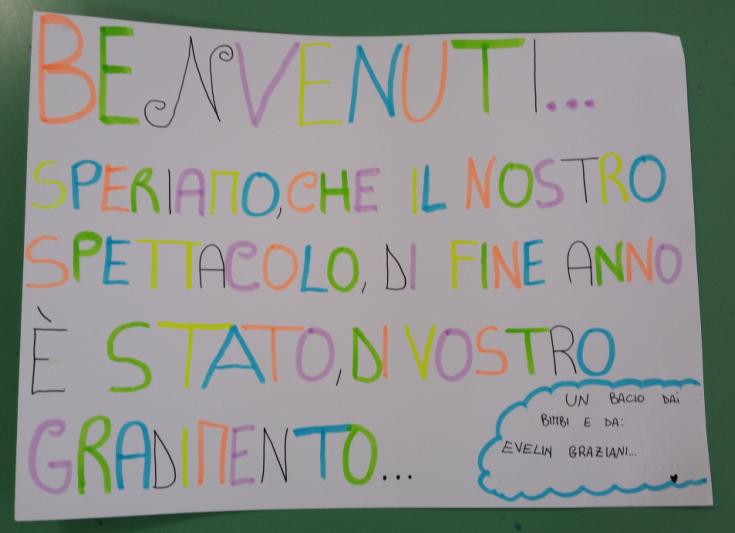 BENVENUTI...
SPERIAMO, CHE IL NOSTRO
SPETTACOLO, DI FINE ANNO
È STATO, DI VOSTRO
GRADIMENTO...
UN BACIO DAi
BIMBI E DA:
EVELIN GRAZIANI...